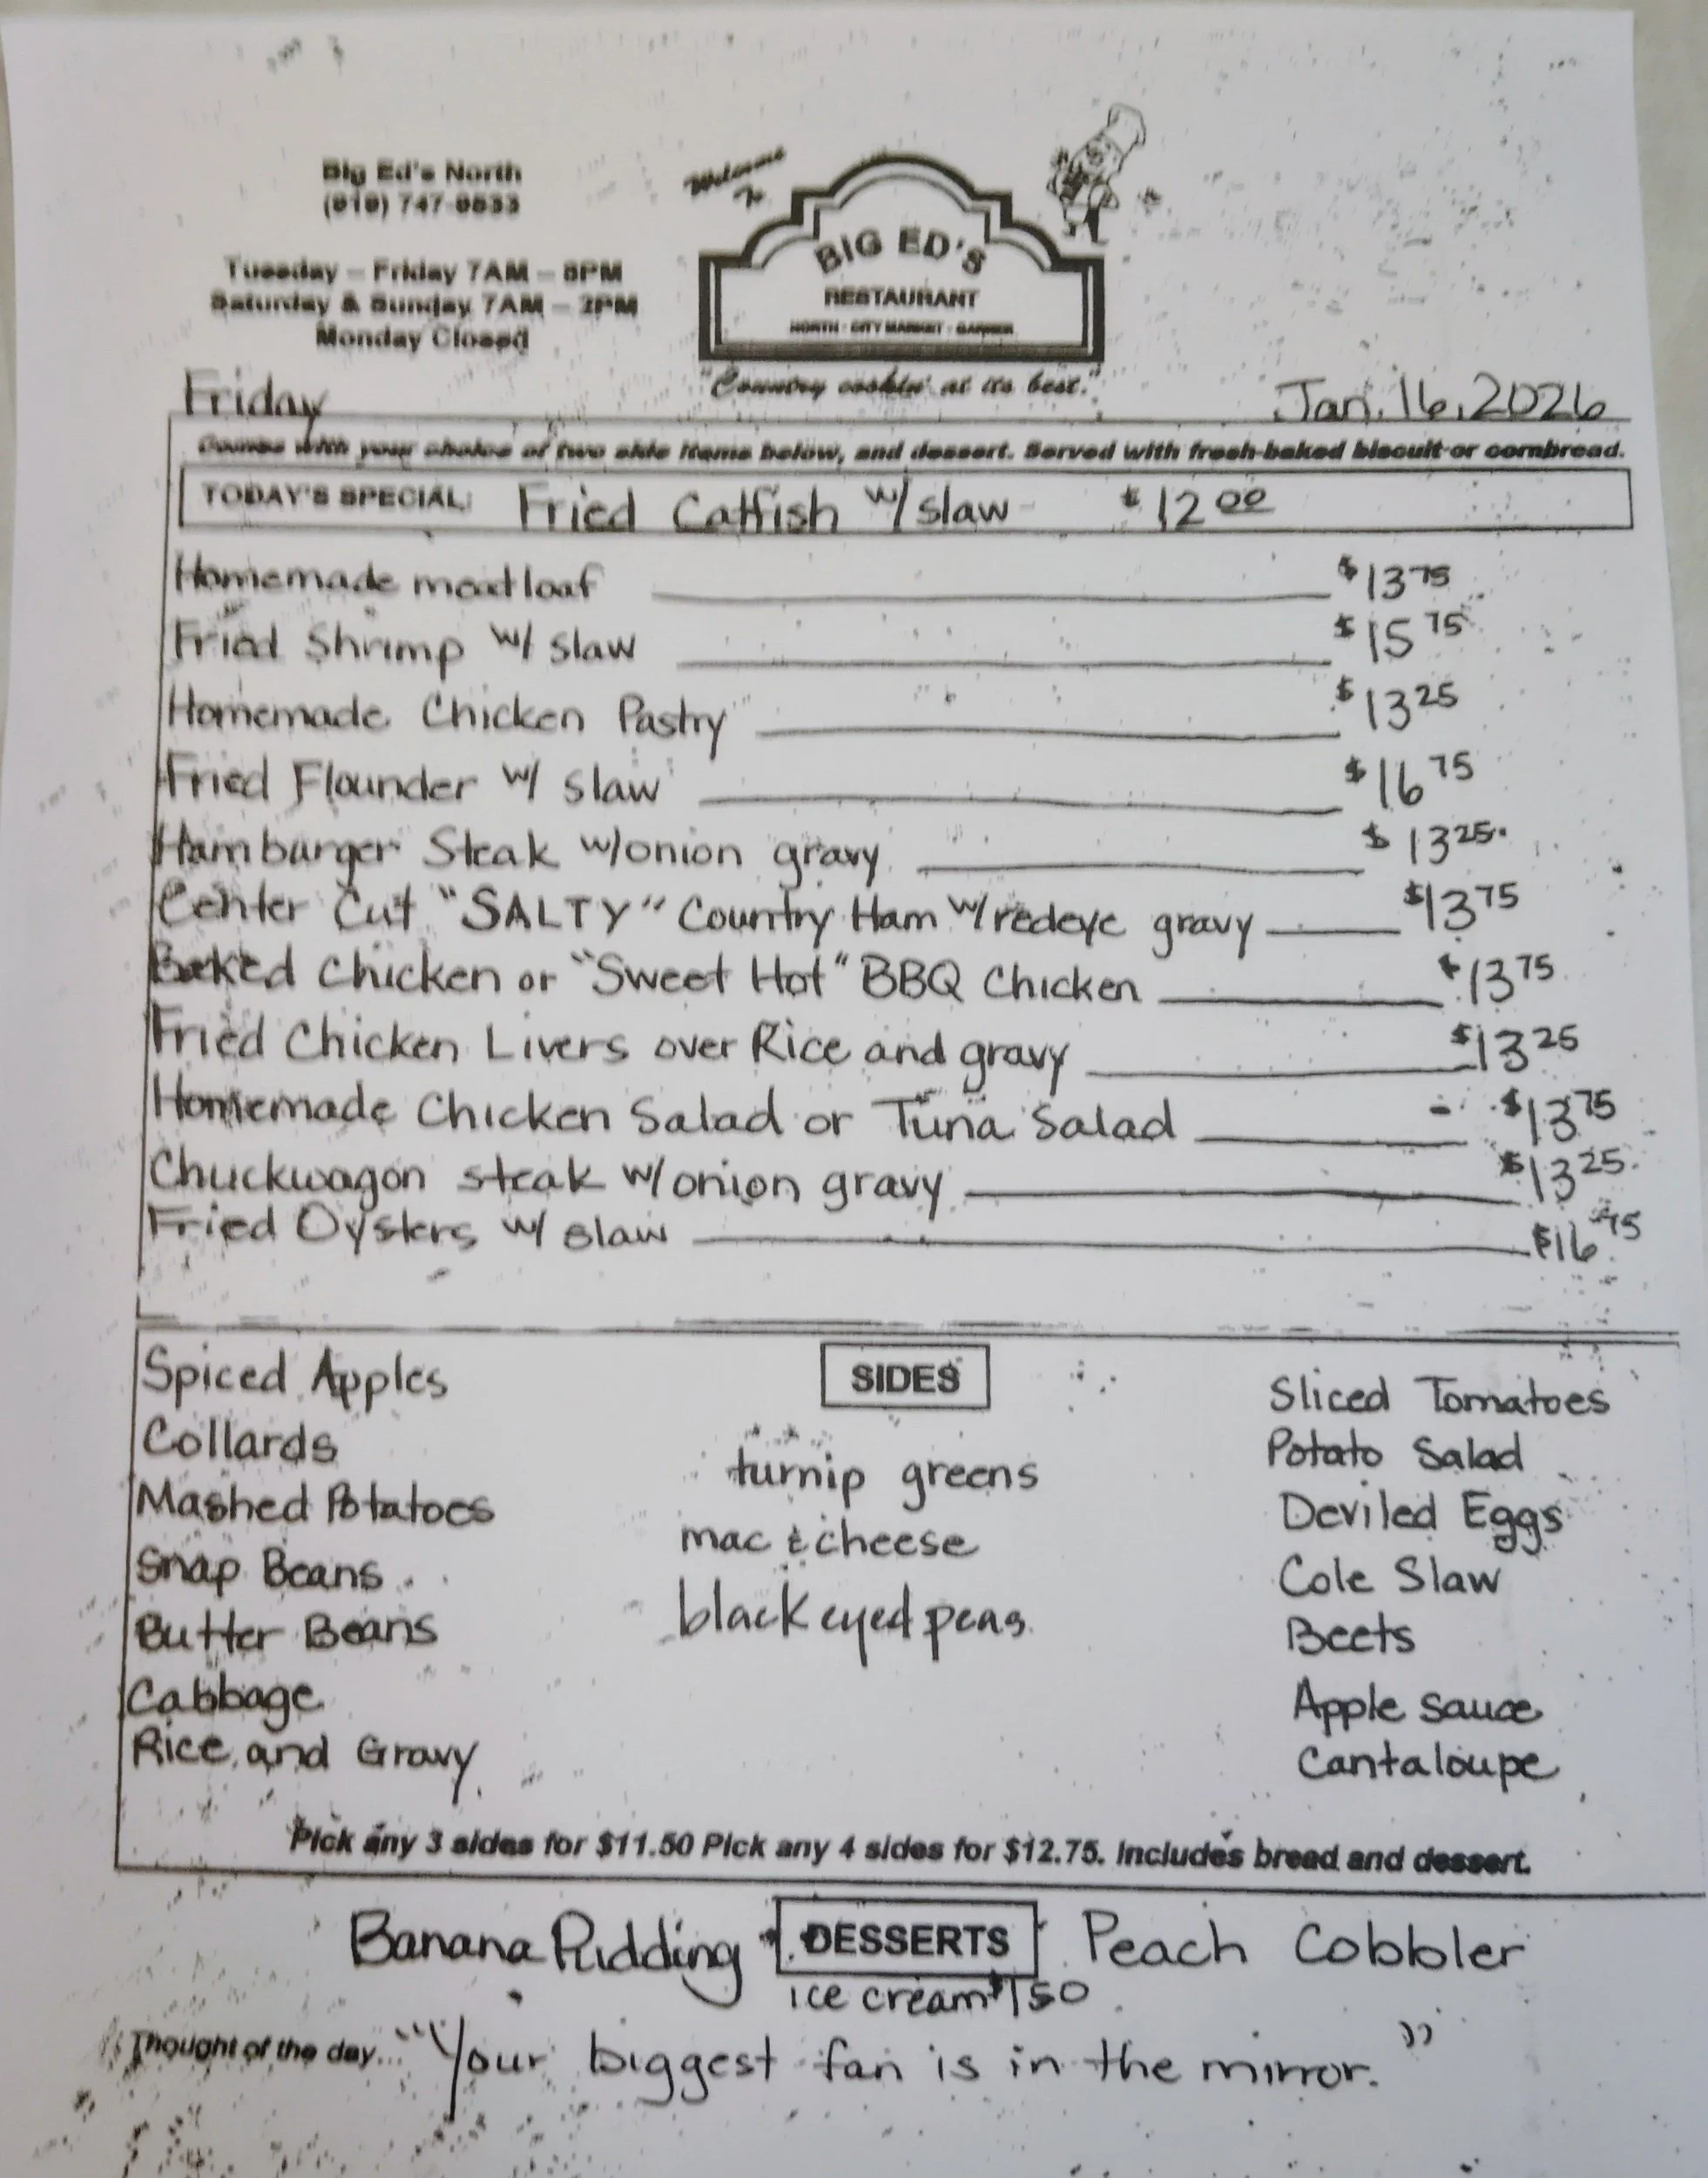 Big Ed's North
(919) 747-9533
Tuesday – Friday 7AM – 8PM
Saturday & Sunday 7AM – 2PM
Monday Closed
Welcome To
BIG ED'S
RESTAURANT
NORTH · CITY MARKET · GARNER
"Country cookin' at its best."
Friday
Jan. 16, 2026
Comes with your choice of two side items below, and dessert. Served with fresh-baked biscuit or cornbread.
TODAY'S SPECIAL: Fried Catfish w/slaw $12 00
Homemade meatloaf $13 75
Fried Shrimp w/ slaw $15 75
Homemade Chicken Pastry $13 25
Fried Flounder w/ slaw $16 75
Hamburger Steak w/onion gravy $13 25
Center Cut "SALTY" Country Ham w/redeye gravy $13 75
Baked Chicken or "Sweet Hot" BBQ Chicken $13 75
Fried Chicken Livers over Rice and gravy $13 25
Homemade Chicken Salad or Tuna Salad $13 75
Chuckwagon steak w/onion gravy $13 25
Fried Oysters w/ slaw $16 75
SIDES
Spiced Apples
Collards
Mashed Potatoes
Snap Beans
Butter Beans
Cabbage
Rice and Gravy
turnip greens
mac & cheese
black eyed peas
Sliced Tomatoes
Potato Salad
Deviled Eggs
Cole Slaw
Beets
Apple sauce
Cantaloupe
Pick any 3 sides for $11.50 Pick any 4 sides for $12.75. Includes bread and dessert.
Banana Pudding DESSERTS Peach Cobbler
ice cream $1 50
Thought of the day... "Your biggest fan is in the mirror."